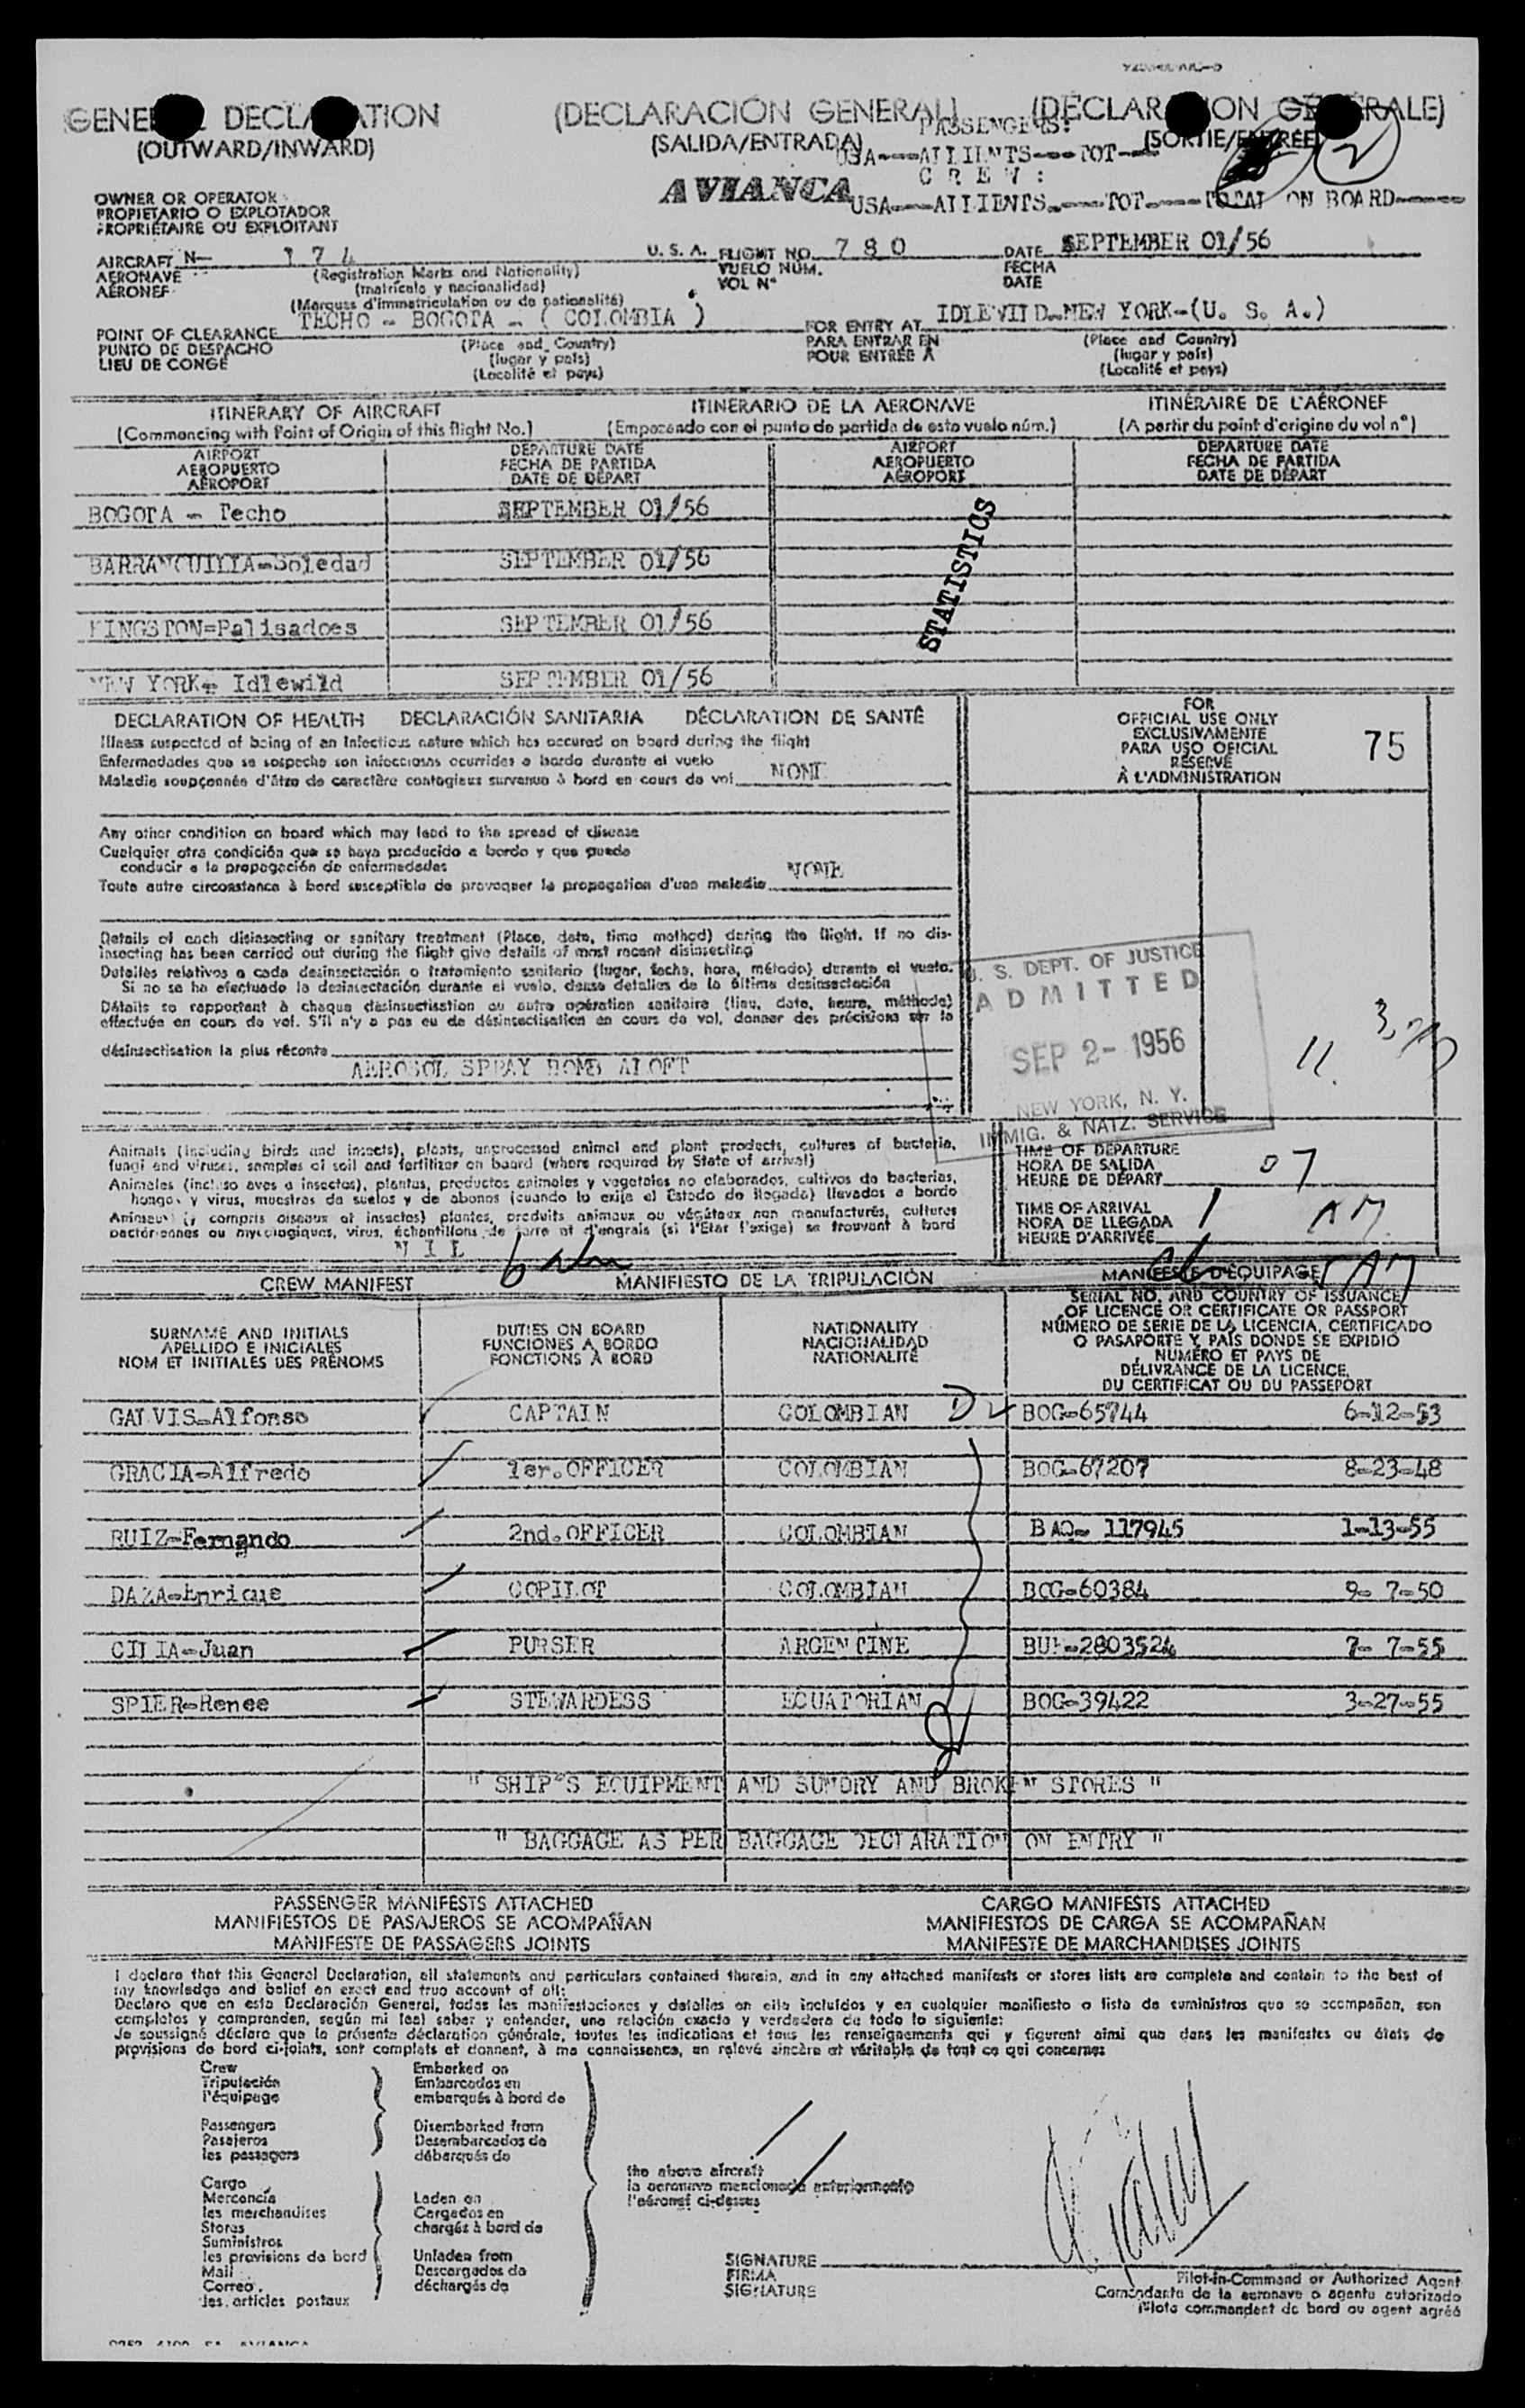 GENERAL DECLARATION (DECLARACIÓN GENERAL) (DÉCLARATION GÉNÉRALE)
(OUTWARD/INWARD) (SALIDA/ENTRADA) (SORTIE/ENTRÉE)
PASSENGERS:
USA----ALLIENTS----TOT----
C R E W :
AVIANCA USA----ALLIENTS----TOT----TOTAL ON BOARD----
OWNER OR OPERATOR
PROPIETARIO O EXPLOTADOR
PROPRIÉTAIRE OU EXPLOITANT
AIRCRAFT N- 174 U. S. A. FLIGHT NO. 780 DATE SEPTEMBER 01/56
AERONAVE (Registration Marks and Nationality) VUELO NÚM. FECHA
AÉRONEF (matrícula y nacionalidad) VOL N° DATE
(Marques d'immatriculation ou de nationalité)
POINT OF CLEARANCE TECHO - BOGOTA - ( COLOMBIA ) FOR ENTRY AT IDLEWILD-NEW YORK-(U. S. A.)
PUNTO DE DESPACHO (Place and Country) PARA ENTRAR EN (Place and Country)
LIEU DE CONGÉ (lugar y país) POUR ENTRÉE À (lugar y país)
(Localité et pays) (Localité et pays)
ITINERARY OF AIRCRAFT ITINERARIO DE LA AERONAVE ITINÉRAIRE DE L'AÉRONEF
(Commencing with Point of Origin of this flight No.) (Empezando con el punto de partida de este vuelo núm.) (A partir du point d'origine du vol n°)
AIRPORT DEPARTURE DATE AIRPORT DEPARTURE DATE
AEROPUERTO FECHA DE PARTIDA AEROPUERTO FECHA DE PARTIDA
AÉROPORT DATE DE DÉPART AÉROPORT DATE DE DÉPART
BOGOTA - Techo SEPTEMBER 01/56
BARRANQUILLA-Soledad SEPTEMBER 01/56
KINGSTON=Palisadoes SEPTEMBER 01/56
NEW YORK- Idlewild SEPTEMBER 01/56
STATISTICS
DECLARATION OF HEALTH DECLARACIÓN SANITARIA DÉCLARATION DE SANTÉ
Illness suspected of being of an Infectious nature which has occured on board during the flight
Enfermedades que se sospecha son infecciosas ocurridas a bordo durante el vuelo
Maladie soupçonnée d'être de caractère contagieux survenue à bord en cours de vol NONE
Any other condition on board which may lead to the spread of disease
Cualquier otra condición que se haya producido a bordo y que pueda
conducir a la propagación de enfermedades
Toute autre circonstance à bord susceptible de provoquer la propagation d'une maladie NONE
Details of each disinsecting or sanitary treatment (Place, date, time method) during the flight. If no dis-
insecting has been carried out during the flight give details of most recent disinsecting
Detalles relativos a cada desinsectación o tratamiento sanitario (lugar, fecha, hora, método) durante el vuelo.
Si no se ha efectuado la desinsectación durante el vuelo, dense detalles de la última desinsectación
Détails se rapportant à chaque désinsectisation ou autre opération sanitaire (lieu, date, heure, méthode)
effectuée en cours de vol. S'il n'y a pas eu de désinsectisation en cours de vol, donner des précisions sur la
désinsectisation la plus récente
AEROSOL SPRAY BOMB ALOFT
FOR
OFFICIAL USE ONLY
EXCLUSIVAMENTE
PARA USO OFICIAL
RÉSERVÉ
À L'ADMINISTRATION
75
U. S. DEPT. OF JUSTICE
ADMITTED
SEP 2- 1956
NEW YORK, N. Y.
IMMIG. & NATZ. SERVICE
Animals (including birds and insects), plants, unprocessed animal and plant products, cultures of bacteria,
fungi and viruses, samples of soil and fertilizer on board (where required by State of arrival)
Animales (incluso aves e insectos), plantas, productos animales y vegetales no elaborados, cultivos de bacterias,
hongos y virus, muestras de suelos y de abonos (cuando lo exija el Estado de llegada) llevados a bordo
Animaux (y compris oiseaux et insectes) plantes, produits animaux ou végétaux non manufacturés, cultures
bactériennes ou mycologiques, virus, échantillons de terre et d'engrais (si l'État l'exige) se trouvant à bord
N I L
TIME OF DEPARTURE
HORA DE SALIDA
HEURE DE DÉPART 07
TIME OF ARRIVAL
HORA DE LLEGADA 1 AM
HEURE D'ARRIVÉE
CREW MANIFEST MANIFIESTO DE LA TRIPULACIÓN MANIFESTE D'ÉQUIPAGE
SURNAME AND INITIALS
APELLIDO E INICIALES
NOM ET INITIALES DES PRÉNOMS
DUTIES ON BOARD
FUNCIONES A BORDO
FONCTIONS À BORD
NATIONALITY
NACIONALIDAD
NATIONALITÉ
SERIAL NO. AND COUNTRY OF ISSUANCE
OF LICENCE OR CERTIFICATE OR PASSPORT
NÚMERO DE SERIE DE LA LICENCIA, CERTIFICADO
O PASAPORTE Y PAÍS DONDE SE EXPIDIÓ
NUMÉRO ET PAYS DE
DÉLIVRANCE DE LA LICENCE,
DU CERTIFICAT OU DU PASSEPORT
GALVIS-Alfonso CAPTAIN COLOMBIAN BOG-65744 6-12-53
GRACIA-Alfredo 1er.OFFICER COLOMBIAN BOG-67207 8-23-48
RUIZ-Fernando 2nd.OFFICER COLOMBIAN BAQ- 117945 1-13-55
DAZA-Enrique COPILOT COLOMBIAN BOG-60384 9- 7-50
CILIA-Juan PURSER ARGENTINE BUE-2803524 7- 7-55
SPIER-Renee STEWARDESS ECUATORIAN BOG-39422 3-27-55
" SHIP'S EQUIPMENT AND SUNDRY AND BROKEN STORES "
" BAGGAGE AS PER BAGGAGE DECLARATION ON ENTRY "
PASSENGER MANIFESTS ATTACHED CARGO MANIFESTS ATTACHED
MANIFIESTOS DE PASAJEROS SE ACOMPAÑAN MANIFIESTOS DE CARGA SE ACOMPAÑAN
MANIFESTE DE PASSAGERS JOINTS MANIFESTE DE MARCHANDISES JOINTS
I declare that this General Declaration, all statements and particulars contained therein, and in any attached manifests or stores lists are complete and contain to the best of
my knowledge and belief an exact and true account of all:
Declaro que en esta Declaración General, todas las manifestaciones y detalles en ella incluídos y en cualquier manifiesto o lista de suministros que se acompañan, son
completos y comprenden, según mi leal saber y entender, una relación exacta y verdadera de todo lo siguiente:
Je soussigné déclare que la présente déclaration générale, toutes les indications et tous les renseignements qui y figurent ainsi que dans les manifestes ou états de
provisions de bord ci-joints, sont complets et donnent, à ma connaissance, un relevé sincère et véritable de tout ce qui concerne:
Crew Embarked on
Tripulación Embarcados en
l'équipage embarqués à bord de
Passengers Disembarked from
Pasajeros Desembarcados de
les passagers débarqués de
Cargo
Mercancía Laden on
les marchandises Cargados en
Stores chargés à bord de
Suministros
les provisions de bord Unladen from
Mail Descargados de
Correo déchargés de
les articles postaux
the above aircraft
la aeronave mencionada anteriormente
l'aéronef ci-dessus
SIGNATURE
FIRMA
SIGNATURE
Pilot-in-Command or Authorized Agent
Comandante de la aeronave o agente autorizado
Pilote commandant de bord ou agent agréé